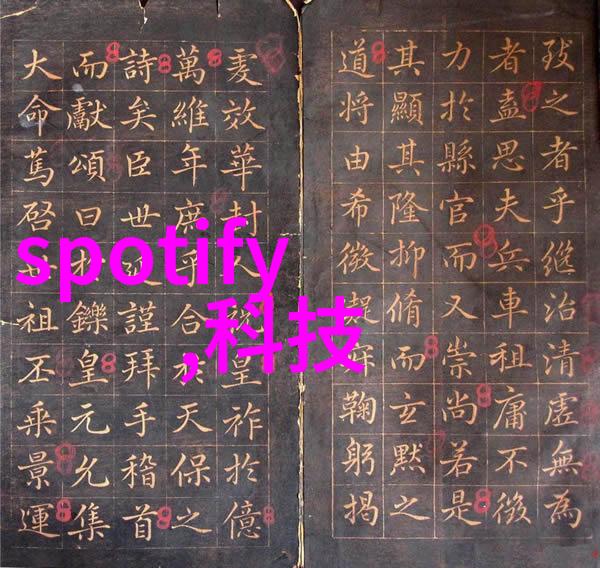 致之者乎継治清虛無為
者盍思夫兵車租庸不徵
力於縣官而又崇尚若是
其顯其隆抑脩而玄默之
道将由希微鞠躬揭
虔效華封人祝皇祚於億
萬維年庶乎合於天保之
詩矣臣世延謹拜手稽首
而獻頌曰於鑠皇元允集
大命篤啓世祖丕乘景運
spotify
,科技